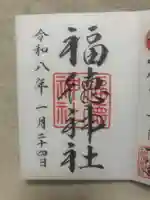 福徳神社
令和八年一月二十四日